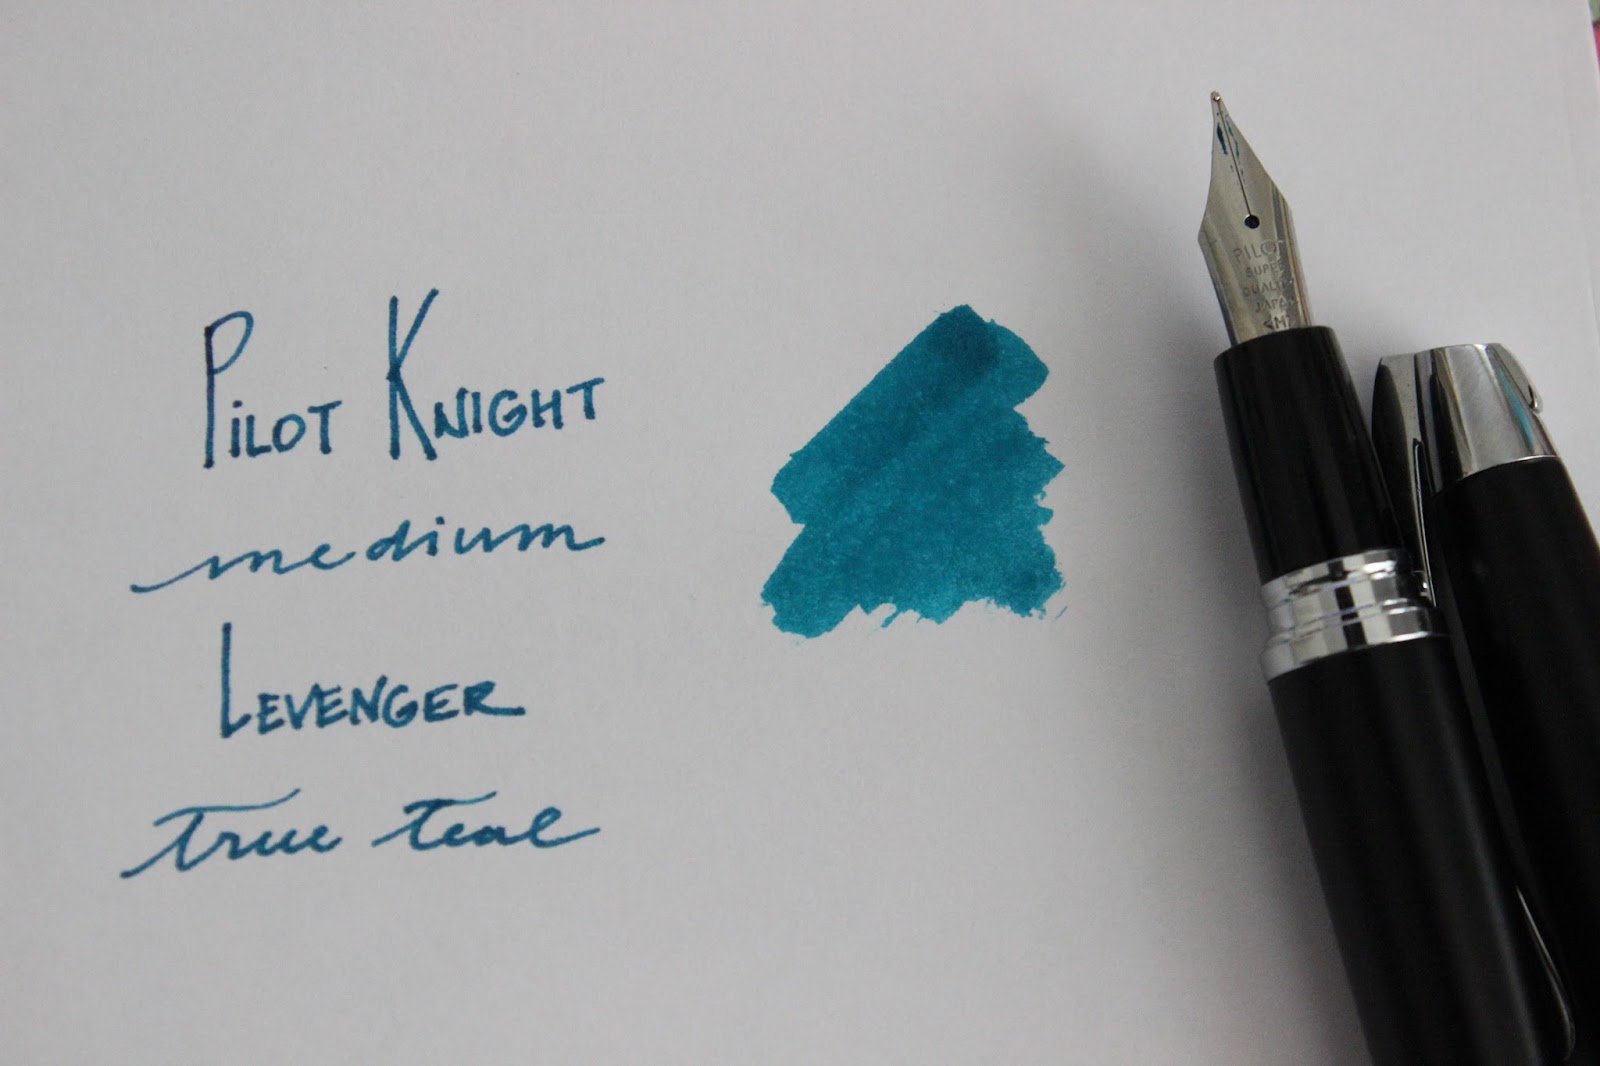 Pilot Knight
medium
Levenger
true teal
PILOT
SUPER
QUALITY
JAPAN
<M>